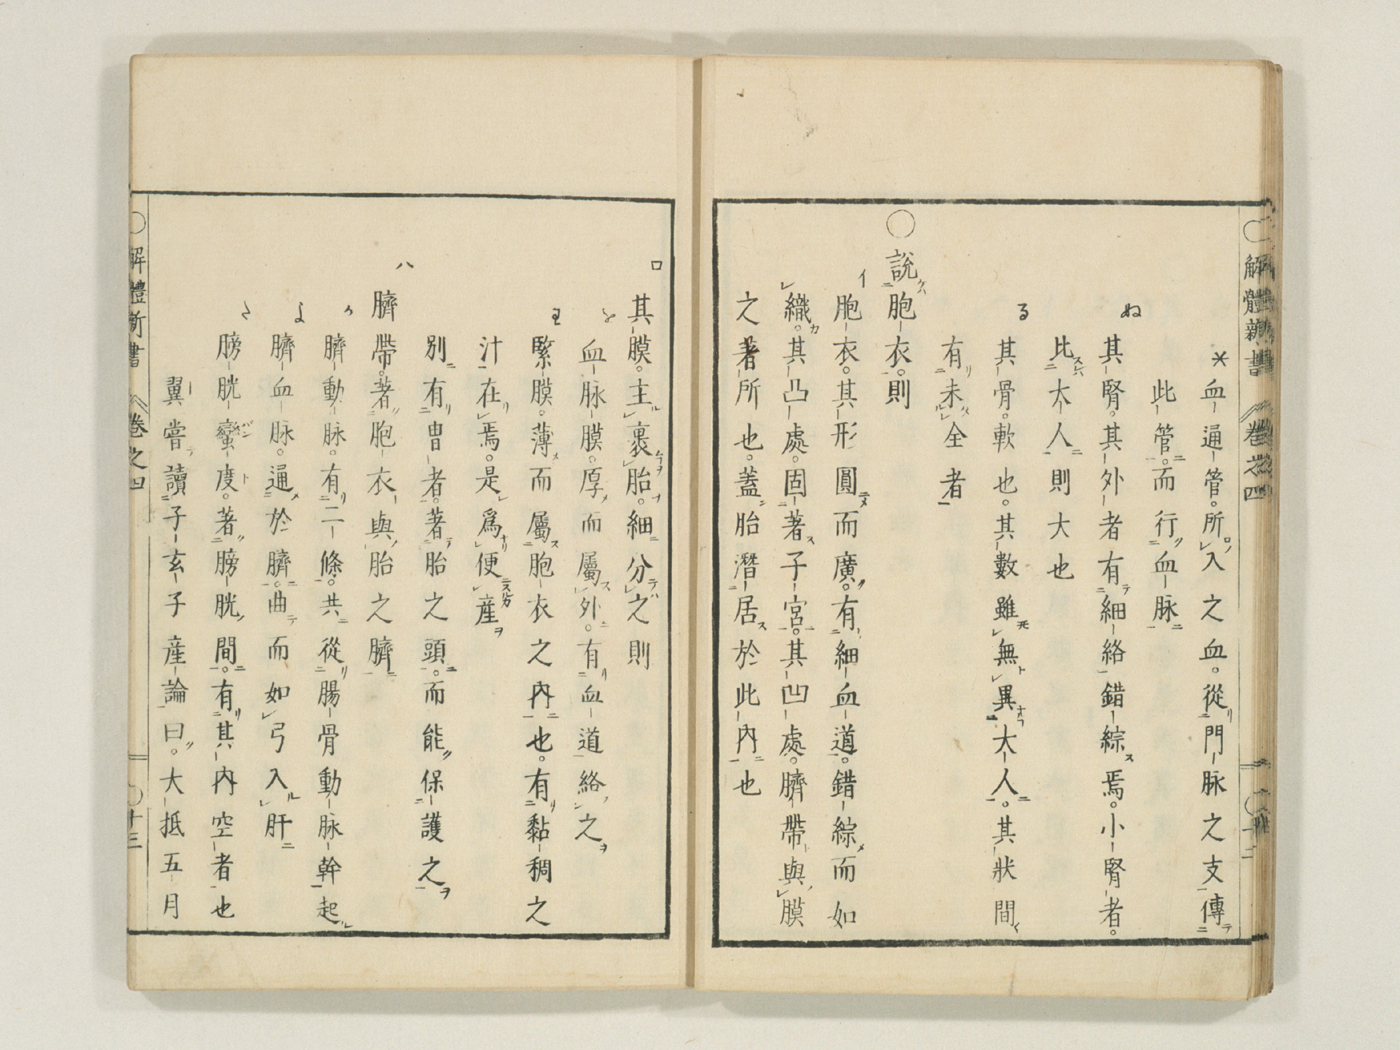 解體新書 卷之四 〇十二
*血通管。所入之血。從門脉之支傳
此管。而行血脉
ぬ 其腎。其外者有細絡錯綜焉。小腎者。
比大人則大也
る 其骨。軟也。其數雖無異大人。其狀間
有未全者
〇說胞衣。則
イ 胞衣。其形圓而廣。有細血道。錯綜而如
織。其凸處。固著子宮。其凹處。臍帶與膜
之著所也。蓋胎潛居於此內也
ロ 其膜。主裹胎。細分之則
を 血脉膜。厚而屬外。有血道絡之
わ 緊膜。薄而屬胞衣之內也。有黏稠之
汁在焉。是爲便產
別有冑者。著胎之頭。而能保護之
ハ 臍帶。著胞衣與胎之臍
か 臍動脉。有二條。共從腸骨動脉幹起
よ 臍血脉。通於臍。曲而如弓入肝
た 膀胱蠻度。著膀胱間。有其內空者也
翼嘗讀子玄子產論曰。大抵五月
〇解體新書 卷之四 〇十三